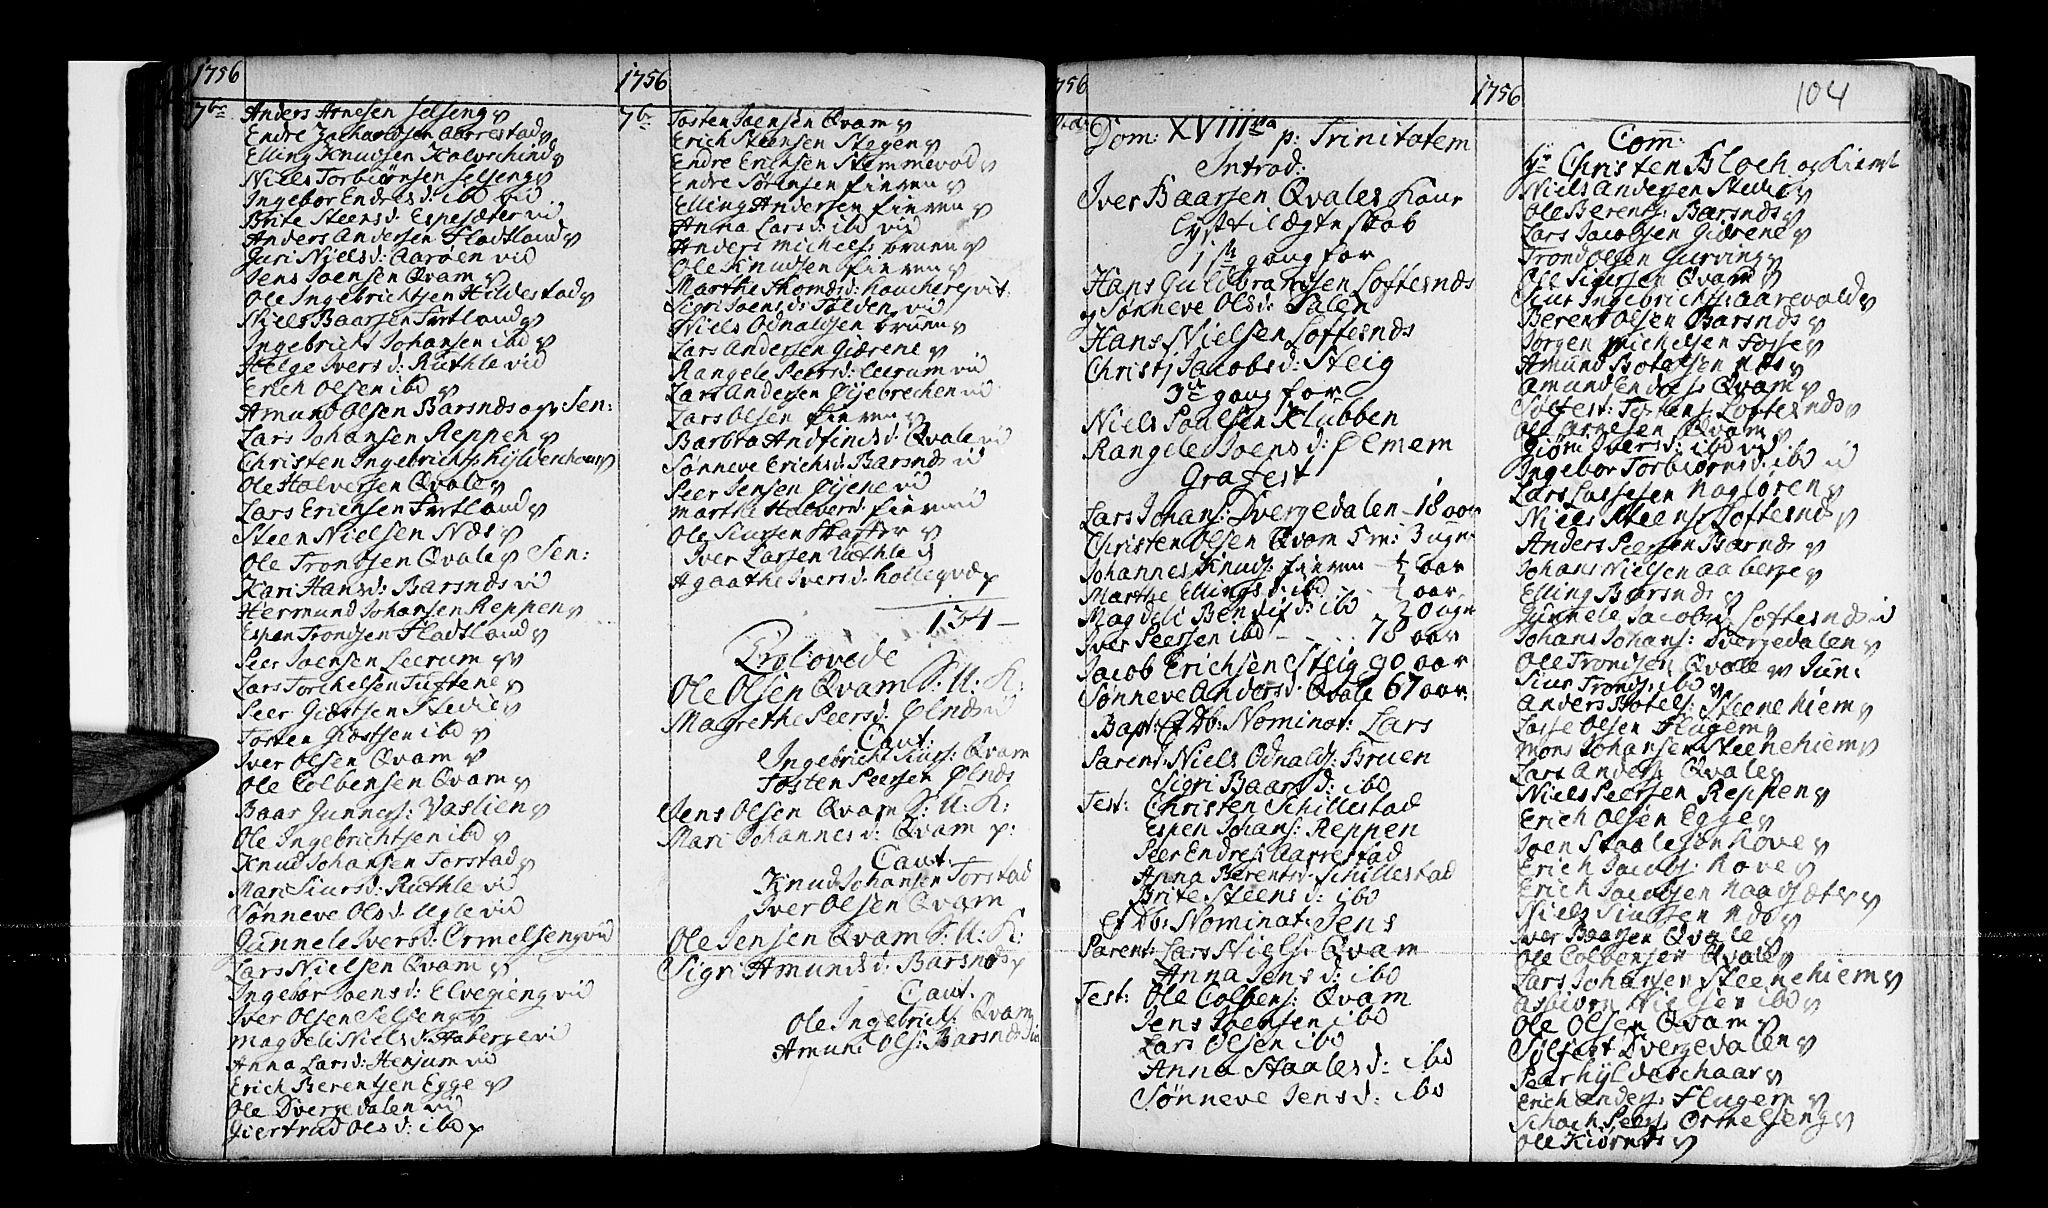 1756
7br
Anders Arnesen Selseng
Endre Zachariasen Aarrestad
Elling Knudsen Kalvschind
Niels Torbiörnsen Selseng
Ingebor Endresd: ibd vid
Brite Steensd: Espesæter vid
Anders Andersen Fladtland
Guri Nielsd: Aaröen vid
Jens Joensen Qvam
Ole Ingebrichtsen Hildestad
Niels Baarsen Furtland
Ingebricht Johansen ibd
Helge Iversd: Ruthle vid
Erich Olsen ibd
Amund Olsen Barsnds Sen:
Lars Johansen Reppen
Christen Ingebrichts
Ole Halversen Qvale
Lars Erichsen Furtland
Steen Nielsen Næs
Ole Trondsen Qvale Sen:
Kari Hansd: Barsnds vid
Hermund Johansen Reppen
Espen Trondsen Fladtland
Peer Joensen Leerum
Lars Torchelsen Tuftene
Peer Giæstsen Stedie
Torten Giæstsen ibd
Iver Olsen Qvam
Ole Colbensen Qvam
Baar Gunners: Vaslien
Ole Ingebrichtsen ibd
Knud Johansen Torstad
Mari Siursd: Ruthle vid
Sönneve Olsd: Ugle vid
Gunnele Iversd: Ormelseng vid
Lars Nielsen Qvam
Ingebor Joensd: Elvegieng vid
Iver Olsen Selseng
Magdeli Nielsd: Haberge vid
Anna Larsd: Henjum vid
Erich Berentsen Egge
Ole Dvergedalen vid
Giertrud Olsd: ibd
1756
7br
Tosten Joensen Qvam
Erich Steensen Stegen
Endre Erichsen Stemmevold
Endre Sörensen Fieren
Elling Andersen Fieren
Anna Larsd: ibd vid
Anders Michels: Bruen
Ole Knudsen Fieren
Marthe Thomesd:
Sigri Joensd: Tolden vid
Niels Odnaldsen Bruen
Lars Andersen Giærene
Rangele Peersd: Leerum vid
Lars Andersen Öijebrechen vid
Lars Olsen Fieren
Barbra Andfindsd: Qvale vid
Sönneve Erichsd: Barsnds vid
Peer Jensen Öijene vid
Marthe Halversd: Fieren vid
Ole Siursen Skarter
Iver Larsen Ruthle
Agaathe Iversd: Holleqvæ
134 —
Trolovede
Ole Olsen Qvam S: U: K:
Magrethe Peersd: Ölnds
Caut:
Ingebricht Siurs: Qvam
Tosten Peersen Ölnds
Jens Olsen Qvam S: U: K:
Mari Johannesd: Qvam p:
Caut:
Knud Johansen Torstad
Iver Olsen Qvam
Ole Jensen Qvam S: U: K:
Sigri Amundsd: Barsnds
Caut.
Ole Ingebrichts Qvam
Amund Ols: Barsnds
756
Dom: XVIIIva p: Trinitatem
Introd:
Iver Baarsen Qvales Kone
Lyst til Ægteskab
1ste gang for
Hans Guldbrandsen Loftesnds
Sönneve Olsd: Salen
Hans Nielsen Loftesnds
Christi Jacobsd: Steig
3die gang for
Niels Poulsen Klubben
Rangele Joensd: Ölmem
Grafest
Lars Johans: Dvergedalen — 18 aar
Christen Olsen Qvam 5 m: 3 ugr
Johannes Knuds: Fieren — ½ aar
Marthe Ellingsd: ibd — ½ aar
Magdeli Bendixd: ibd 20 ugr
Iver Peersen ibd — 78 aar
Jacob Erichsen Steig 90 aar
Sönneve Andersd: Qvale 67 aar
Bapt: Et Db: Nominat: Lars
Parent: Niels Odnalds: Bruen
Sigri Baarsd: ibd
Test: Christen Schillestad
Espen Johans: Reppen
Peer Endres Aarrestad
Anna Berentsd: Schillestad
Brite Steensd: ibd
Et Db: Nominat: Jens
Parent: Lars Niels: Qvam
Anna Jensd: ibd
Test: Ole Colbens: Qvam
Jens Joensen ibd
Lars Olsen ibd
Anna Staalesd: ibd
Sönneve Jensd: ibd
1756
104
Com:
Hr Christen Bloch
Niels Andersen Stedie
Ole Berents: Barsnds
Lars Jacobsen Giærene
Trond Olsen Gurving
Ole Siursen Qvam
Siur Ingebrichts: Aarevold
Berent Olsen Barsnds
Jörgen Michelsen Fosse
Amund Botolfsen Næs
Amund Endres: Qvam
Sölfest: Tostens: Loftesnds
Ole Arnesen Qvam
Giöri Iversd: ibd vid
Ingebor Torbiörnsd: ibd vid
Lars Lassesen Nagløren
Niels Steens: Loftesnds
Anders Peersen Barnds
Johans Nielsen Aaberge
Elling Barsnds
Gunnele Jacobsd: Loftesnds vid
Johans Johans: Dvergedalen
Ole Trondsen Qvale Jun:
Siur Tronds: ibd
Anders Botels: Steenehiem
Lasse Olsen Flugem
Mons Johansen Steenehiem
Lars Anders: Qvale
Niels Peersen Reppen
Erich Olsen Egge
Joen Staalesen Hove
Erich Jacobs: Hove
Erich Jacobsen Haagsæter
Niels Siursen Nds
Iver Baarsen Qvale
Ole Colbensen Qvale
Lars Johansen Steenehiem
Asbiörn Nielsen ibd
Ole Olsen Qvam
Sölfest Dvergedalen
Peer Hyldeschaar
Erich Anders: Flugem
Schach Peers: Ormelseng
Ole Kiörnes